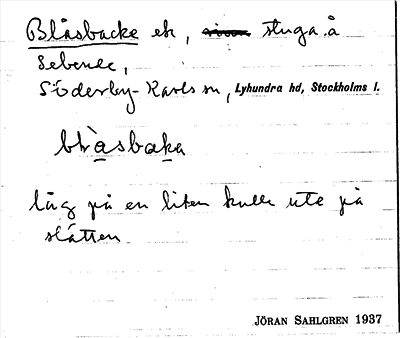 Blåsbacke eh, stuga å
Sebence,
Söderby-Karls sn, Lyhundra hd, Stockholms l.
blàsbaka
låg på en liten kulle ute på
slätten
JÖRAN SAHLGREN 1937